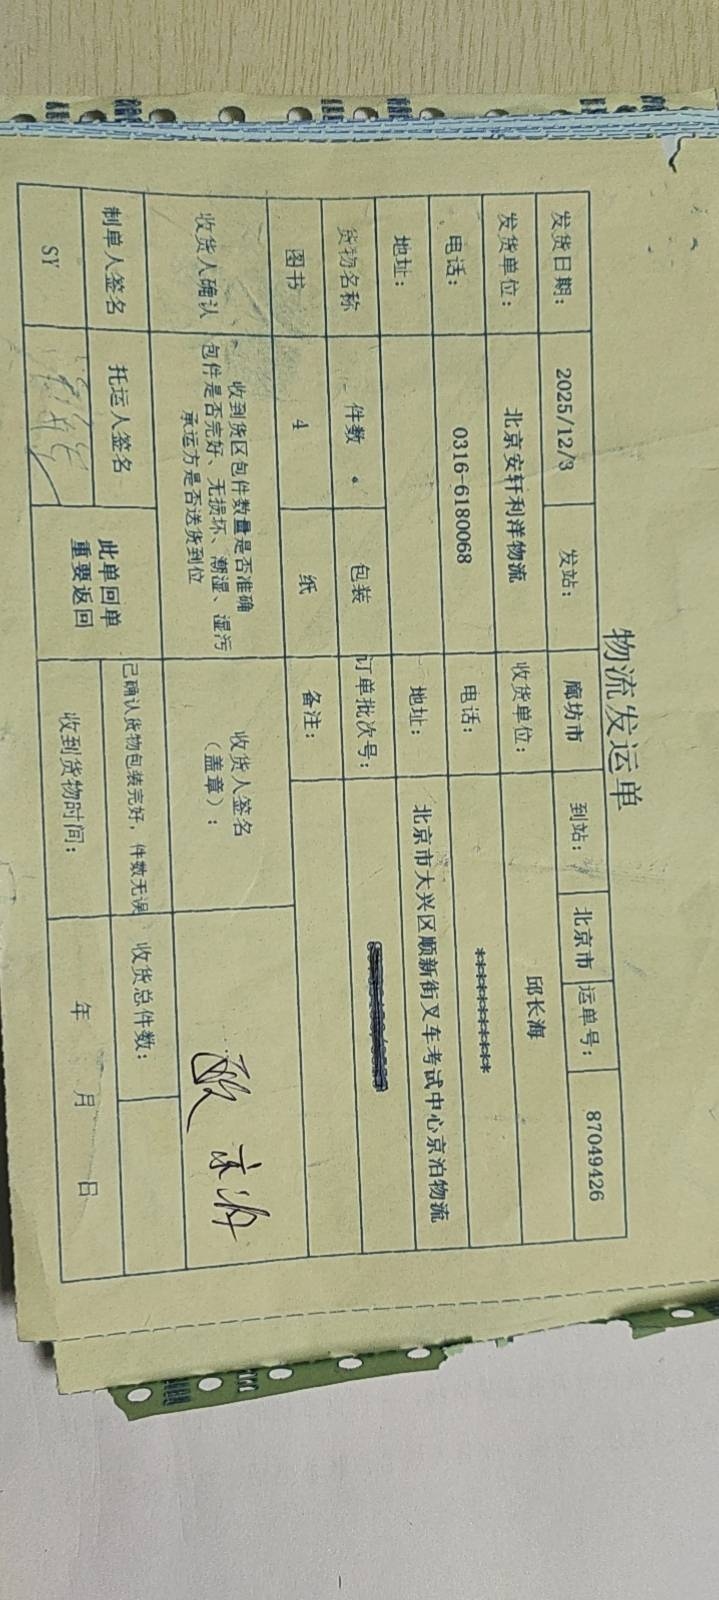 物流发运单
发货日期： 2025/12/3 发站： 廊坊市 到站： 北京市 运单号： 87049426
发货单位： 北京安轩利洋物流 收货单位： 邱长海
电话： 0316-6180068 电话： **********
地址： 地址： 北京市大兴区顺新街叉车考试中心京泊物流
货物名称 件数 包装 订单批次号：
图书 4 纸 备注：
收货人确认 收到货区包件数量是否准确 收货人签名
包件是否完好、无损坏、潮湿、湿污 （盖章）：
承运方是否送货到位
制单人签名 托运人签名 此单回单 已确认货物包装完好，件数无误 收货总件数：
SY 重要返回 收到货物时间： 年 月 日